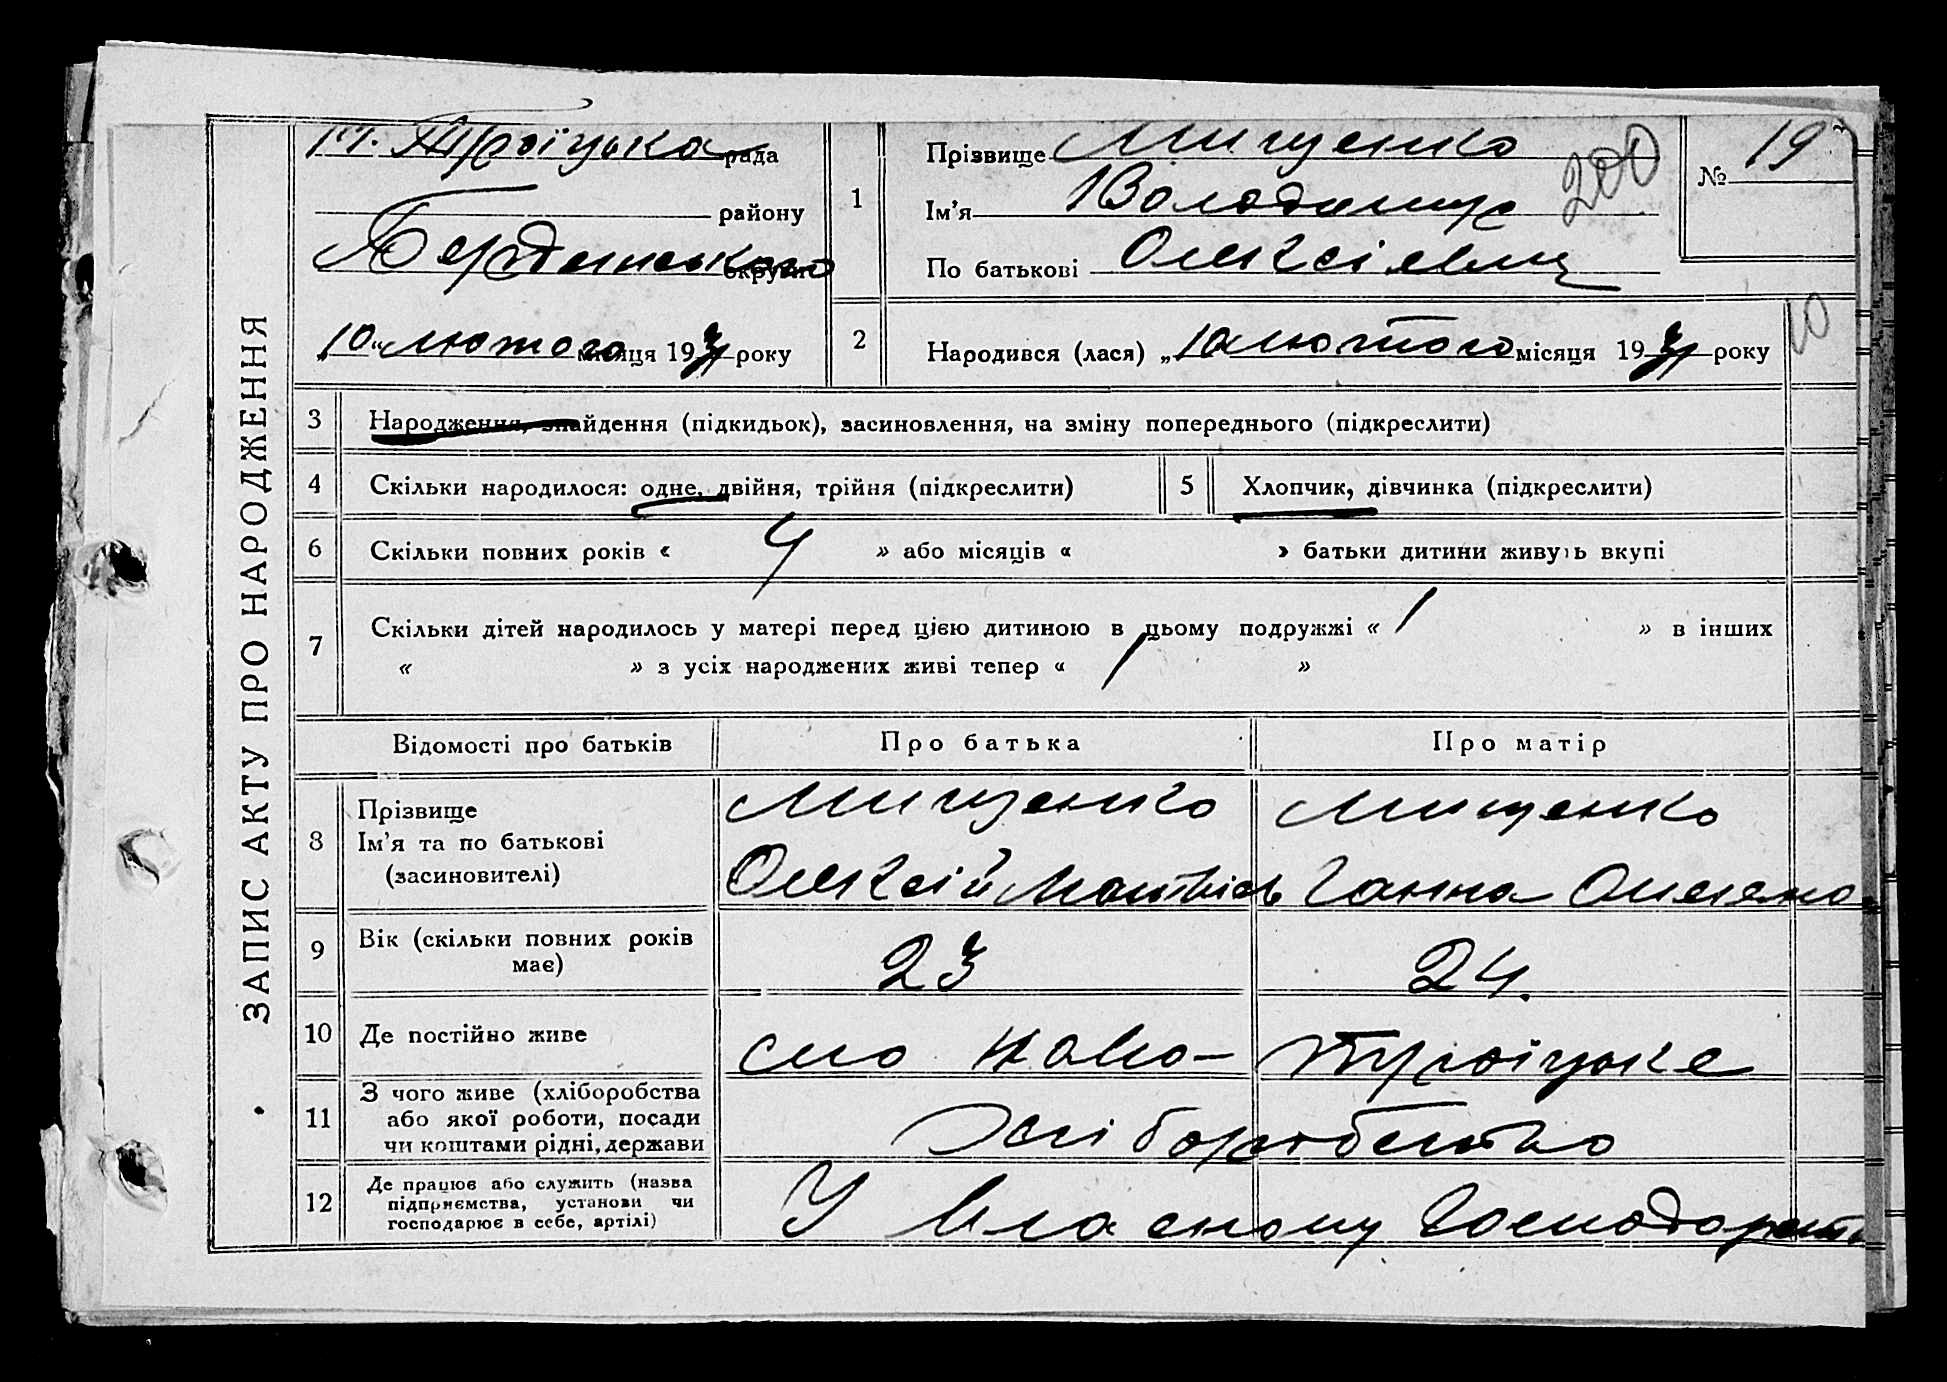 ЗАПИС АКТУ ПРО НАРОДЖЕННЯ
Н. Троїцька рада
району
Бердянського округи
„10“ лютого місяця 1931 року
1
Прізвище Мищенко
Ім'я Володимир
По батькові Олексієвич
200
№ 19
2
Народився (лася) „10 лютого місяця 1931 року
10
3 Народження, знайдення (підкидьок), засиновлення, на зміну попереднього (підкреслити)
4 Скільки народилося: одне, двійня, трійня (підкреслити)
5 Хлопчик, дівчинка (підкреслити)
6 Скільки повних років « 4 » або місяців « » батьки дитини живуть вкупі
7 Скільки дітей народилось у матері перед цією дитиною в цьому подружжі « 1 » в інших
« » з усіх народжених живі тепер « 1 »
Відомості про батьків Про батька Про матір
8 Прізвище Мищенко Мищенко
Ім'я та по батькові
(засиновителі) Олексій Матвієв Ганна Омеляно
9 Вік (скільки повних років має) 23 24.
10 Де постійно живе село Ново-Троїцьке
11 З чого живе (хліборобства
або якої роботи, посади
чи коштами рідні, держави Хліборобство
12 Де працює або служить (назва
підприємства, установи чи
господарює в себе, артілі) У власному господарств